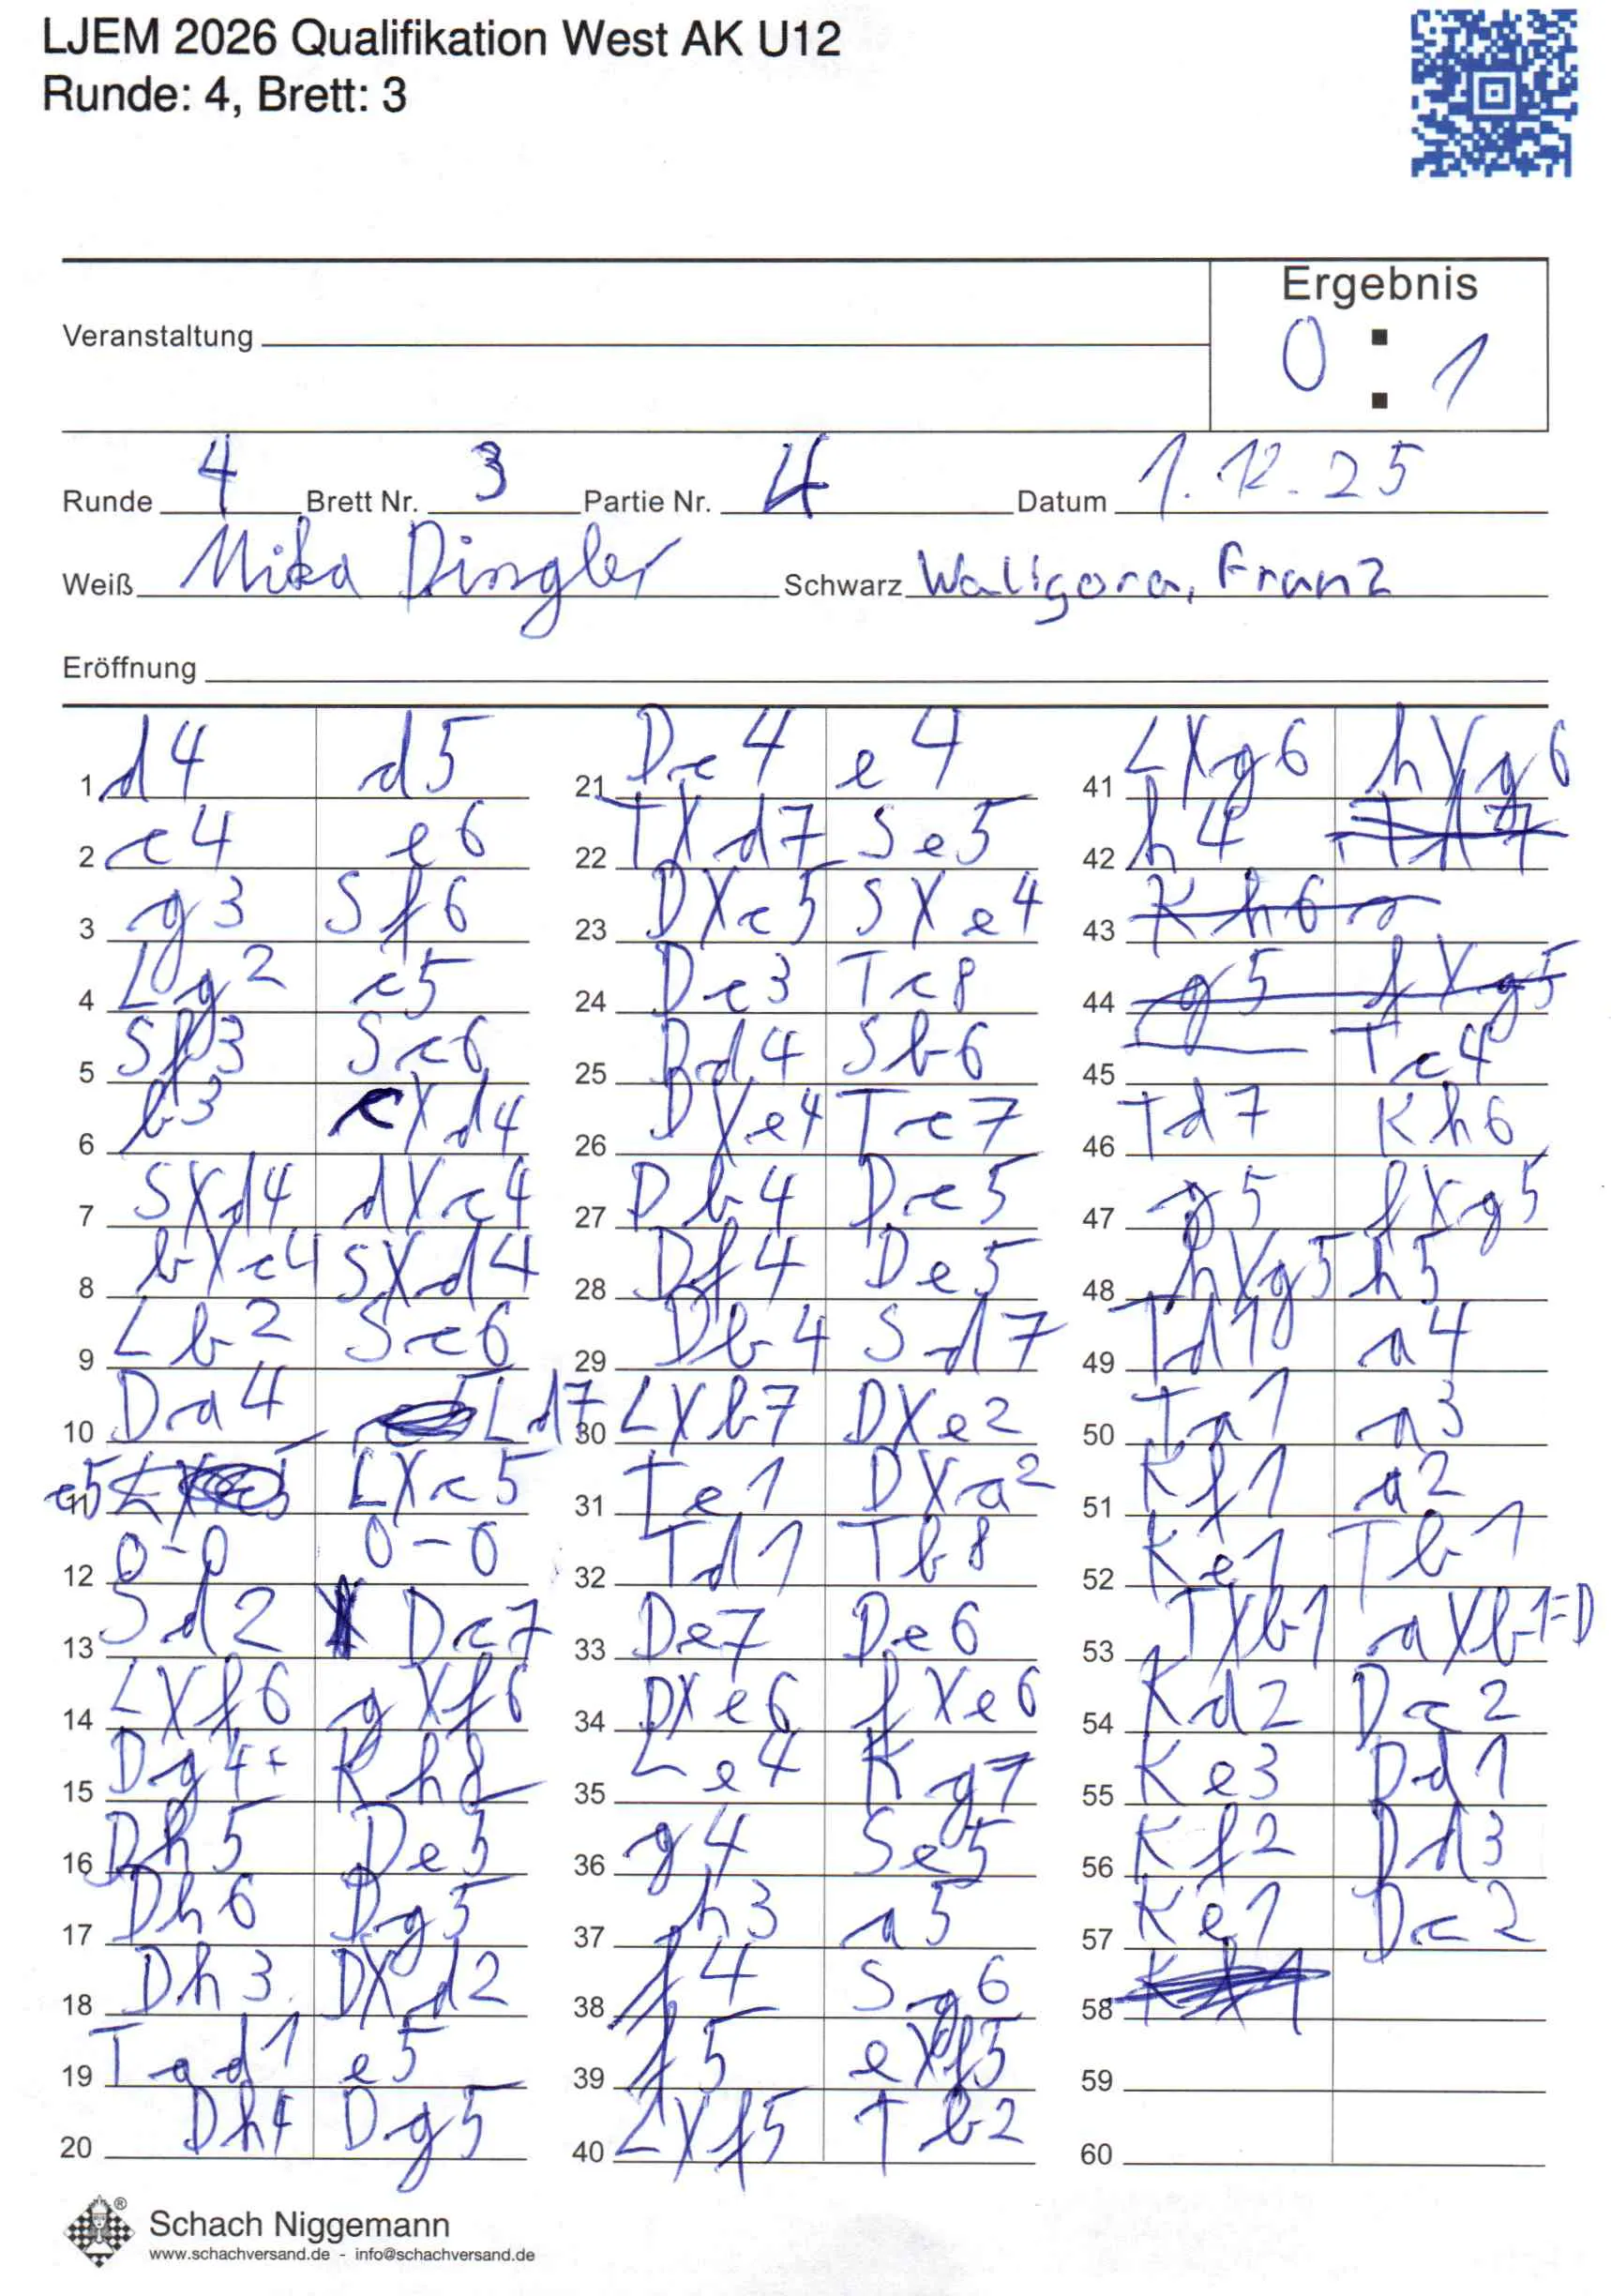 LJEM 2026 Qualifikation West AK U12
Runde: 4, Brett: 3
Ergebnis
Veranstaltung
0 : 1
Runde 4 Brett Nr. 3 Partie Nr. 4 Datum 1.12.25
Weiß Mika Dingler Schwarz Waligora, Franz
Eröffnung
1 d4 d5
2 c4 e6
3 g3 Sf6
4 Lg2 c5
5 Sf3 Sc6
6 b3 cXd4
7 SXd4 dXc4
8 bXc4 SXd4
9 Lb2 Sc6
10 Da4 Ld7
11 c5 LXc5
12 0-0 0-0
13 Sd2 Dc7
14 LXf6 gXf6
15 Dg4+ Kh8
16 Dh5 De5
17 Dh6 Dg5
18 Dh3 DXd2
19 Tad1 e5
20 Dh4 Dg5
21 Dc4 e4
22 TXd7 Se5
23 DXc5 SXe4
24 Dc3 Tc8
25 Dd4 Sb6
26 DXe4 Tc7
27 Db4 Dc5
28 Df4 De5
29 Db4 Sd7
30 LXb7 DXe2
31 Te1 DXa2
32 Td1 Tb8
33 De7 De6
34 DXe6 fXe6
35 Le4 Kg7
36 g4 Se5
37 h3 a5
38 f4 Sg6
39 f5 eXf5
40 LXf5 Tb2
41 LXg6 hXg6
42 h4
43 Kh6
44 g5 fXg5
45 Tc4
46 Td7 Kh6
47 g5 fXg5
48 hXg5 h5
49 Td1 a4
50 Ta1 a3
51 Kf1 a2
52 Ke1 Tb1
53 TXb1 aXb1=D
54 Kd2 Dc2
55 Ke3 Dd1
56 Kf2 Dd3
57 Ke1 Dc2
58
59
60
Schach Niggemann
www.schachversand.de - info@schachversand.de